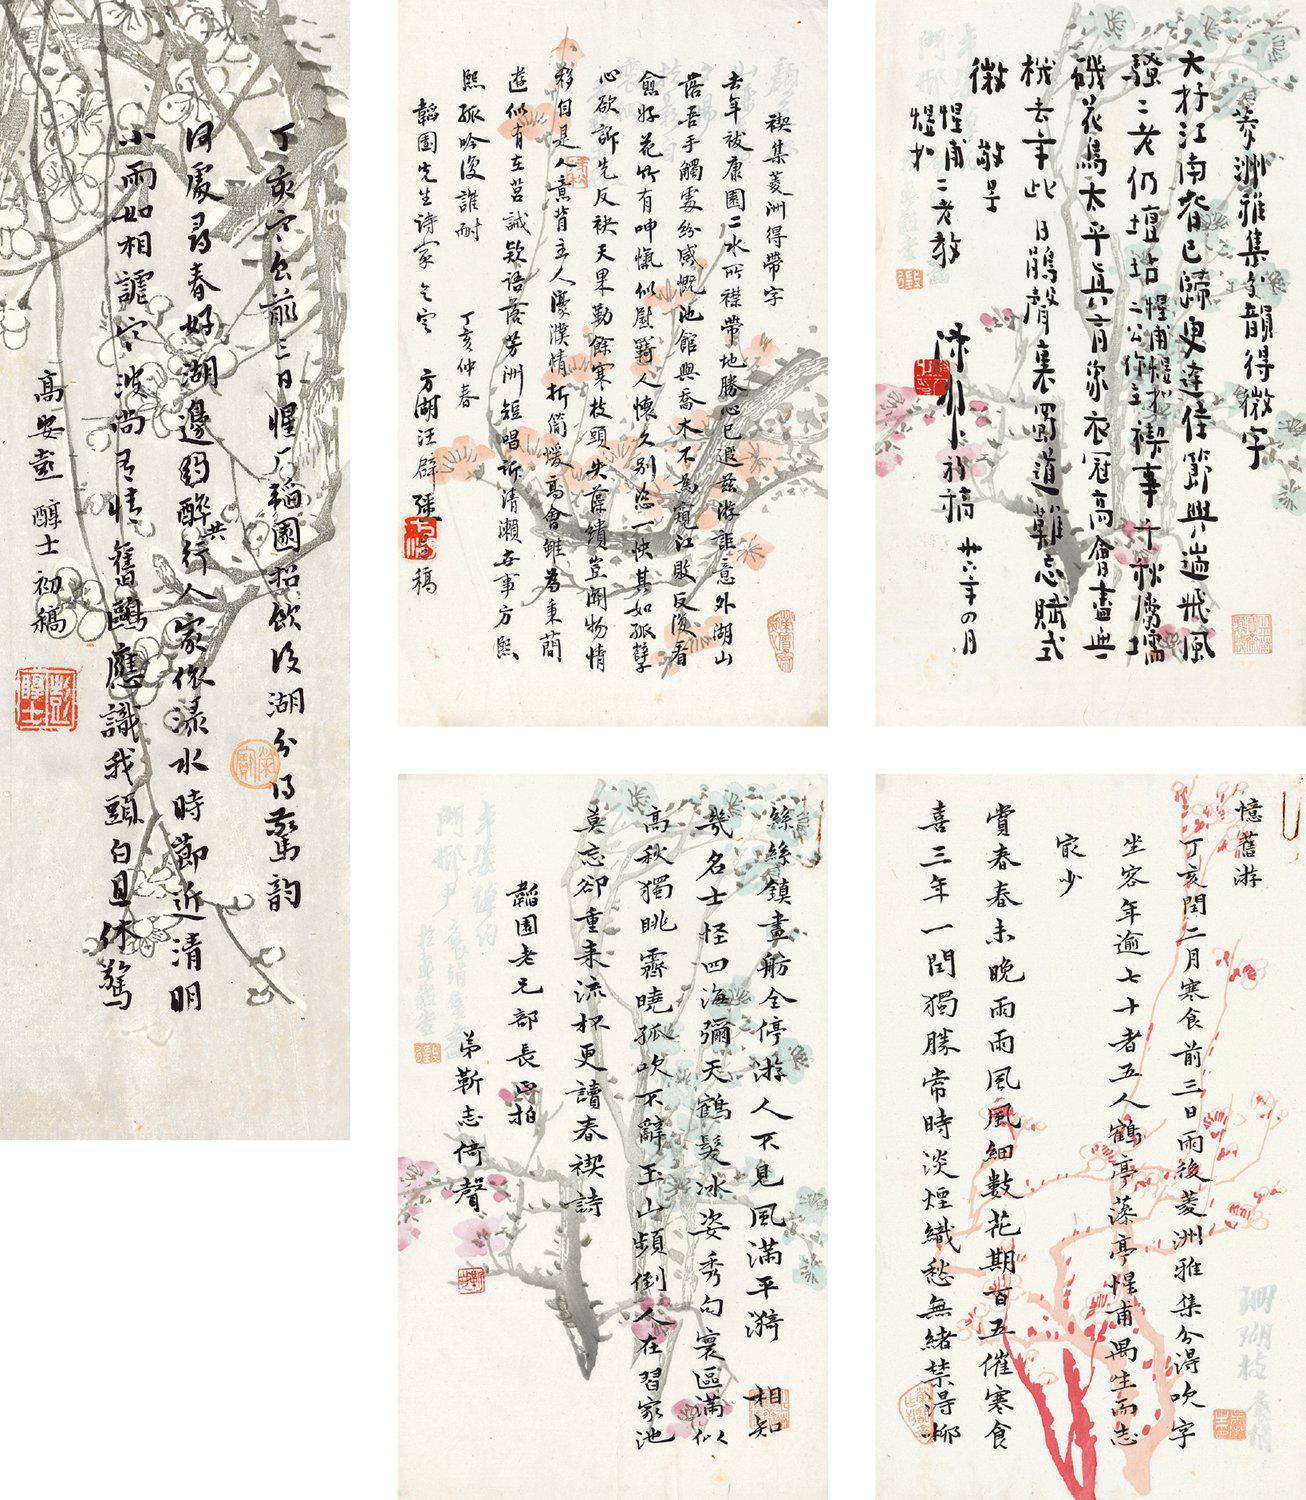 丁亥寒食前三日惺厂韜園招飲後湖分得驚韵
何處尋春好湖邊酌醉行人家依淥水時節近清明
共
小雨如相謔空波尚有情舊鷗應識我頭白且休驚
高安彭醇士初稿
彭醇士
禊集菱洲得帶字
去年袚康園二水所襟帶地勝心已遐茲游詎意外湖山
落吾手觸處紛感慨池館與喬木不為窺江敗反復看
愈好花竹有呻愾似慰覉人懷久別恣一快其如孤孽
心欲訴先反袂天果勤餘寒枝頭失葆繢豈關物情
移自是人意背主人濠濮情折簡煖高會雖為秉蕑
遊似有在莒誡欵語落芳洲短唱訴清瀨世事方熙
熙孤吟復誰耐
丁亥仲春
韜園先生詩家乞定
方湖汪辟疆呈稿
菱洲雅集分韻得微字
大好江南春已歸更逢佳節興遄飛風
騷二老仍壇坫惺甫惺杉二公作主禊事千秋屬孺
磯花鳥太平真有象衣冠高會盡無
機去年此日鵑聲裏蜀道艱難忘賦式
微 敬呈
惺甫二老教
惺杉
初稿 卅六年四月
憶舊游
丁亥閏二月寒食前三日雨後菱洲雅集分得吹字
坐客年逾七十者五人鶴亭藻亭惺甫禺生而志
最少
賞春春未晚雨雨風風細數花期百五催寒食
喜三年一閏獨勝常時淡煙織愁無緒禁得柳
絲絲鎮畫舫全停游人不見風滿平漪 相知
幾名士怪四海彌天鶴髮冰姿秀句寰區滿似
高秋獨眺霽曉孤吹不辭玉山頻倒人在習家池
莫忘卻重來流杯更讀春禊詩
韜園老兄部長正拍
弟靳志倚聲